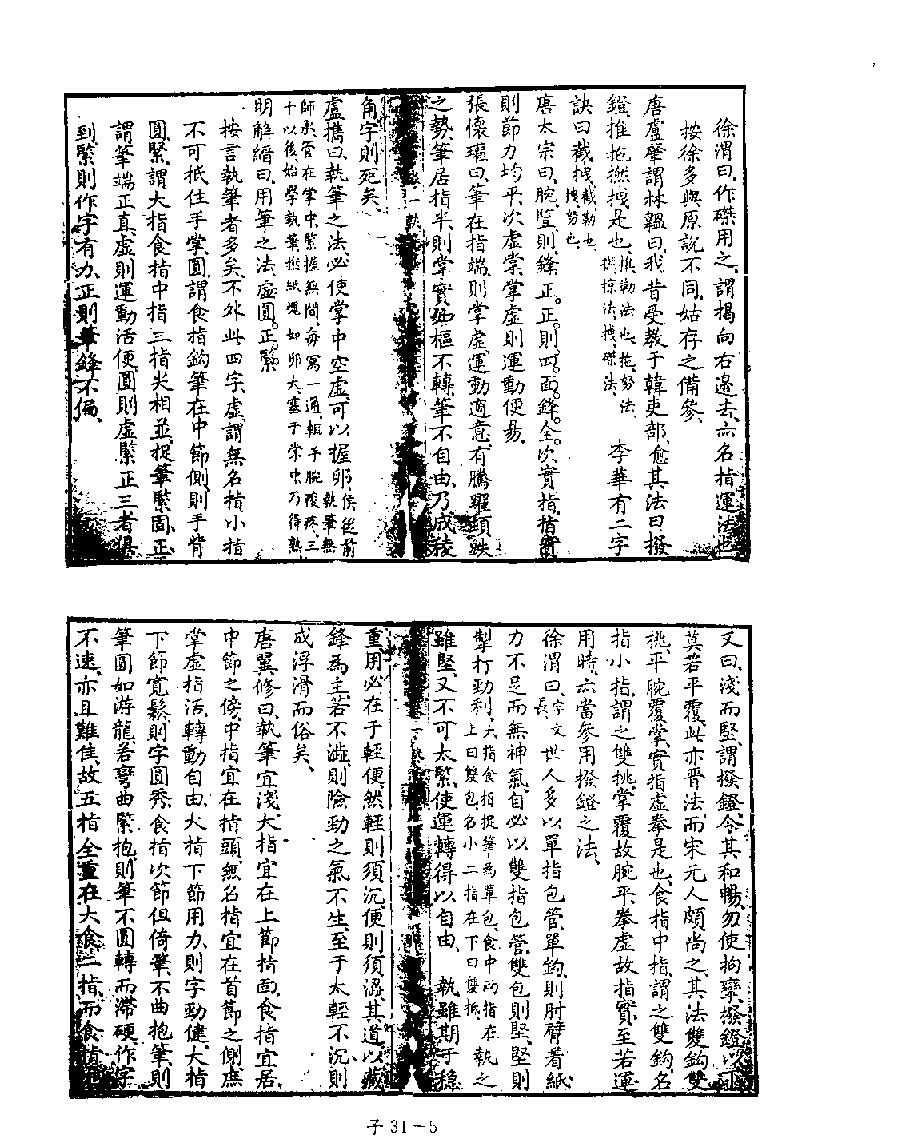 徐渭曰作磔用之謂揭向右邊去亦名指運法也
按徐多與原說不同姑存之備參
唐盧肇謂林韞曰我昔受教于韓吏部愈其法曰撥
鐙推拖撚拽是也 李華有二字
訣曰截拽截勒也拽努也
唐太宗曰腕豎則鋒正正則四面鋒全次實指指實
則節力均平次虛掌掌虛則運動便易
張懷瓘曰筆在指端則掌虛運動適意有騰躍頓跌
之勢筆居指半則掌實如樞不轉筆不自由乃成稜
角字則死矣
盧攜曰執筆之法必使掌中空虛可以握卵
師
十以後始學執筆
明解縉曰用筆之法虛圓正緊
按言執筆者多矣不外此四字虛謂無名指小指
不可抵住手掌圓謂食指鈎筆在中節側則手背
圓緊謂大指食指中指三指尖相並捉筆緊固正
謂筆端正直虛則運動活便圓則虛緊正三者俱
到緊則作字有力正則筆鋒不偏
又曰淺而堅謂撥鐙令其和暢勿使拘攣撥鐙以下
其若平覆此亦晋法而宋元人頗尚之其法雙鈎雙
挑平腕覆掌實指虛拳是也食指中指謂之雙鈎名
指小指謂之雙挑掌覆故腕平拳虛故指實至若運
用時亦當參用撥鐙之法
徐渭曰字文長世人多以單指包管單鈎則肘臂着紙
力不足而無神氣自必以雙指包管雙包則堅堅則
掣打勁利大指食指捉筆為單包食中兩指在
上曰雙包名小二指在下曰雙抵 執之
雖堅又不可太緊使運轉得以自由 執雖期于穩
重用必在于輕便然輕則須沉便則須澁其道以藏
鋒為主若不澁則險勁之氣不生至于太輕不沉則
成浮滑而俗矣
唐翼修曰執筆宜淺大指宜在上節指面食指宜居
中節之傍中指宜在指頭無名指宜在首節之側庶
掌虛指活轉動自由大指下節用力則字勁健大指
下節寬鬆則字圓秀食指次節但倚筆不曲抱筆則
筆圓如游龍若彎曲緊抱則筆不圓轉而滯硬作字
不速亦且難佳故五指全重在大食二指而食指
子31-5